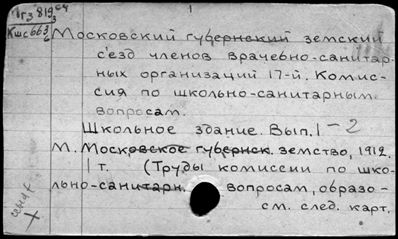 1
Кшс 663/6
Московский губернский земский
съезд членов врачебно-санитар-
ных организаций 17-й. Комис-
сия по школьно-санитарным
вопросам.
Школьное здание. Вып. 1-2
М. Московское губернск. земство, 1912.
1 т. (Труды комиссии по шко-
льно-санитарн. вопросам, образо-
см. след. карт.